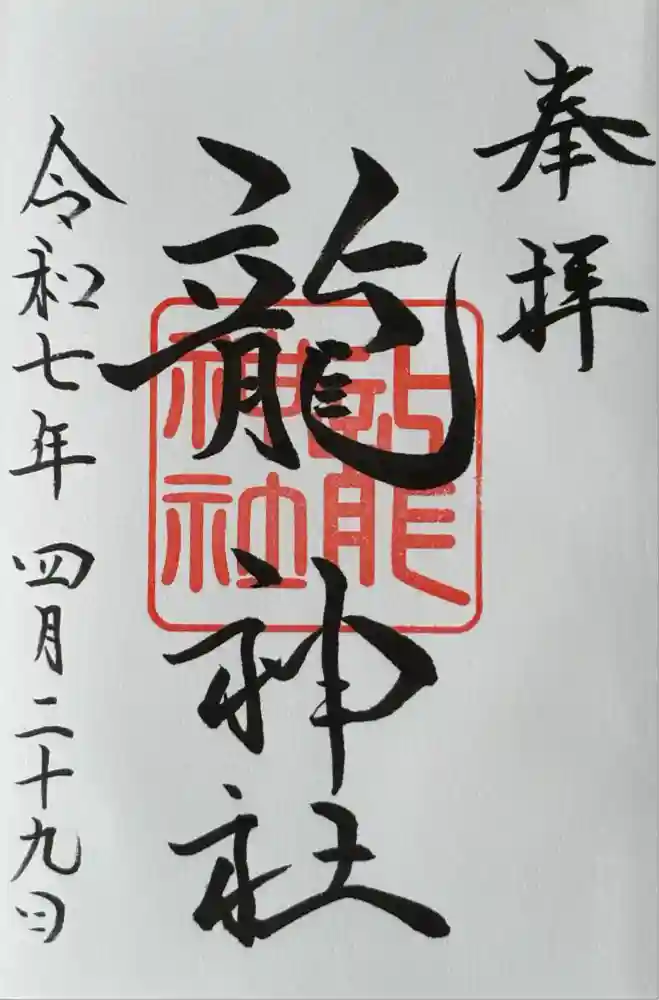 奉拝
龍神社
龍神社
令和七年四月二十九日